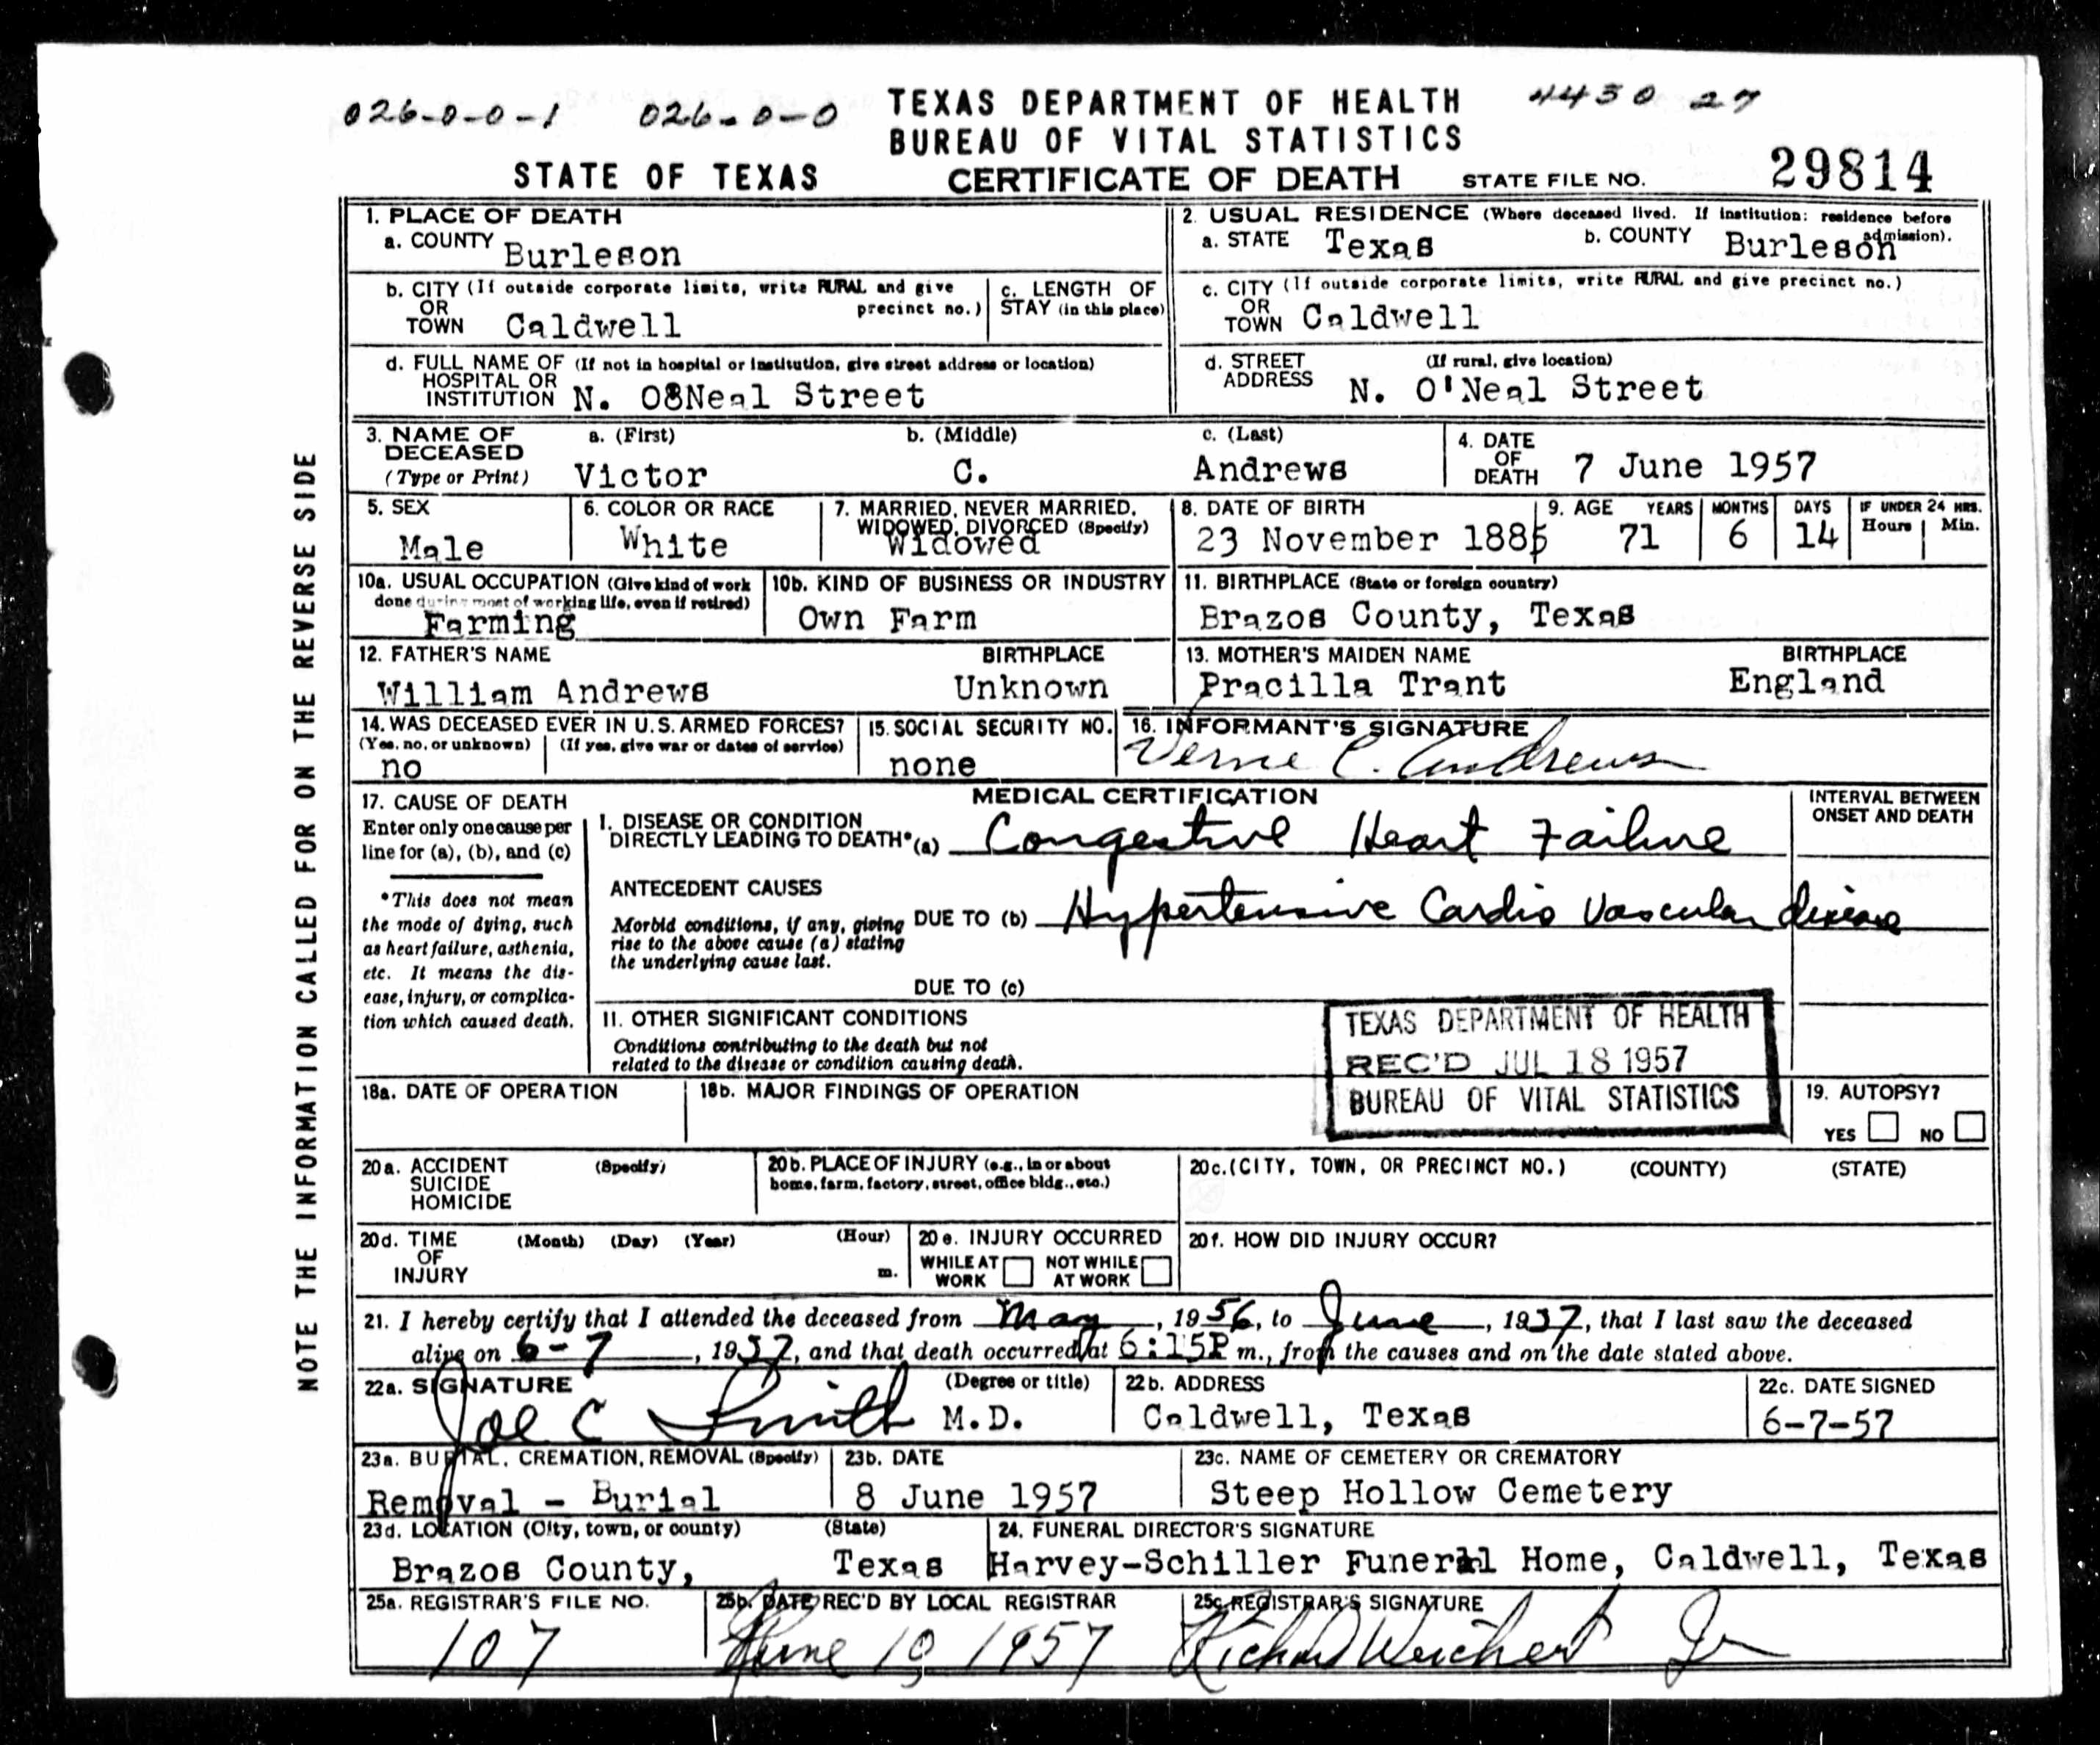 026-0-0-1 026-0-0 TEXAS DEPARTMENT OF HEALTH 4430 27
BUREAU OF VITAL STATISTICS
STATE OF TEXAS CERTIFICATE OF DEATH STATE FILE NO. 29814
NOTE THE INFORMATION CALLED FOR ON THE REVERSE SIDE
1. PLACE OF DEATH
a. COUNTY Burleson
2. USUAL RESIDENCE (Where deceased lived. If institution: residence before admission).
a. STATE Texas b. COUNTY Burleson
b. CITY (If outside corporate limits, write RURAL and give precinct no.)
OR TOWN Caldwell
c. LENGTH OF STAY (in this place)
c. CITY (If outside corporate limits, write RURAL and give precinct no.)
OR TOWN Caldwell
d. FULL NAME OF (If not in hospital or institution, give street address or location)
HOSPITAL OR INSTITUTION N. O8Neal Street
d. STREET ADDRESS (If rural, give location)
N. O'Neal Street
3. NAME OF DECEASED (Type or Print)
a. (First) b. (Middle) c. (Last)
Victor C. Andrews
4. DATE OF DEATH 7 June 1957
5. SEX
Male
6. COLOR OR RACE
White
7. MARRIED, NEVER MARRIED, WIDOWED, DIVORCED (Specify)
Widowed
8. DATE OF BIRTH
23 November 1885
9. AGE YEARS MONTHS DAYS IF UNDER 24 HRS. Hours Min.
71 6 14
10a. USUAL OCCUPATION (Give kind of work done during most of working life, even if retired)
Farming
10b. KIND OF BUSINESS OR INDUSTRY
Own Farm
11. BIRTHPLACE (State or foreign country)
Brazos County, Texas
12. FATHER'S NAME BIRTHPLACE
William Andrews Unknown
13. MOTHER'S MAIDEN NAME BIRTHPLACE
Pracilla Trant England
14. WAS DECEASED EVER IN U.S. ARMED FORCES?
(Yes, no, or unknown) (If yes, give war or dates of service)
no
15. SOCIAL SECURITY NO.
none
16. INFORMANT'S SIGNATURE
Verne C. Andrews
17. CAUSE OF DEATH
Enter only one cause per line for (a), (b), and (c)
*This does not mean the mode of dying, such as heart failure, asthenia, etc. It means the disease, injury, or complication which caused death.
MEDICAL CERTIFICATION
INTERVAL BETWEEN ONSET AND DEATH
I. DISEASE OR CONDITION DIRECTLY LEADING TO DEATH* (a) Congestive Heart Failure
ANTECEDENT CAUSES
Morbid conditions, if any, giving rise to the above cause (a) stating the underlying cause last.
DUE TO (b) Hypertensive Cardio Vascular disease
DUE TO (c)
II. OTHER SIGNIFICANT CONDITIONS
Conditions contributing to the death but not related to the disease or condition causing death.
TEXAS DEPARTMENT OF HEALTH
REC'D JUL 18 1957
BUREAU OF VITAL STATISTICS
18a. DATE OF OPERATION
18b. MAJOR FINDINGS OF OPERATION
19. AUTOPSY?
YES NO
20a. ACCIDENT SUICIDE HOMICIDE (Specify)
20b. PLACE OF INJURY (e.g., in or about home, farm, factory, street, office bldg., etc.)
20c. (CITY, TOWN, OR PRECINCT NO.) (COUNTY) (STATE)
20d. TIME OF INJURY (Month) (Day) (Year) (Hour) m.
20e. INJURY OCCURRED
WHILE AT WORK NOT WHILE AT WORK
20f. HOW DID INJURY OCCUR?
21. I hereby certify that I attended the deceased from May, 1956, to June, 1957, that I last saw the deceased
alive on 6-7, 1957, and that death occurred at 6:15P m., from the causes and on the date stated above.
22a. SIGNATURE (Degree or title)
Joe C Smith M.D.
22b. ADDRESS
Caldwell, Texas
22c. DATE SIGNED
6-7-57
23a. BURIAL, CREMATION, REMOVAL (Specify)
Removal - Burial
23b. DATE
8 June 1957
23c. NAME OF CEMETERY OR CREMATORY
Steep Hollow Cemetery
23d. LOCATION (City, town, or county) (State)
Brazos County, Texas
24. FUNERAL DIRECTOR'S SIGNATURE
Harvey-Schiller Funeral Home, Caldwell, Texas
25a. REGISTRAR'S FILE NO.
107
25b. DATE REC'D BY LOCAL REGISTRAR
June 10 1957
25c. REGISTRAR'S SIGNATURE
Richard Weichert Jr